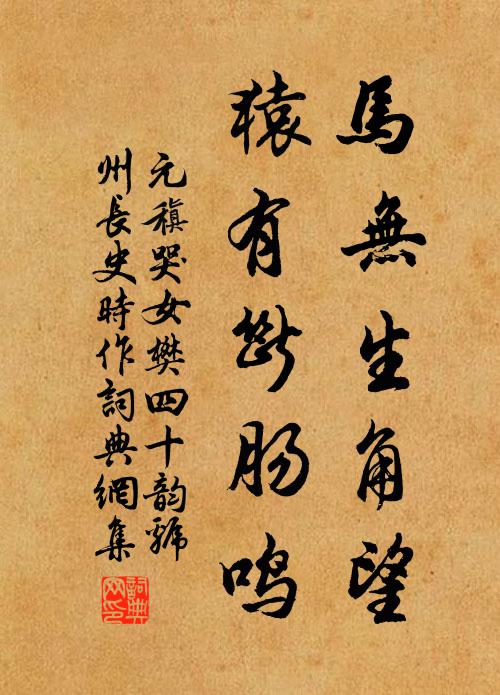 馬無生角望
猿有斷腸鳴
元稹哭女樊四十韻虢
州長史時作詞典網集
詞典
网印